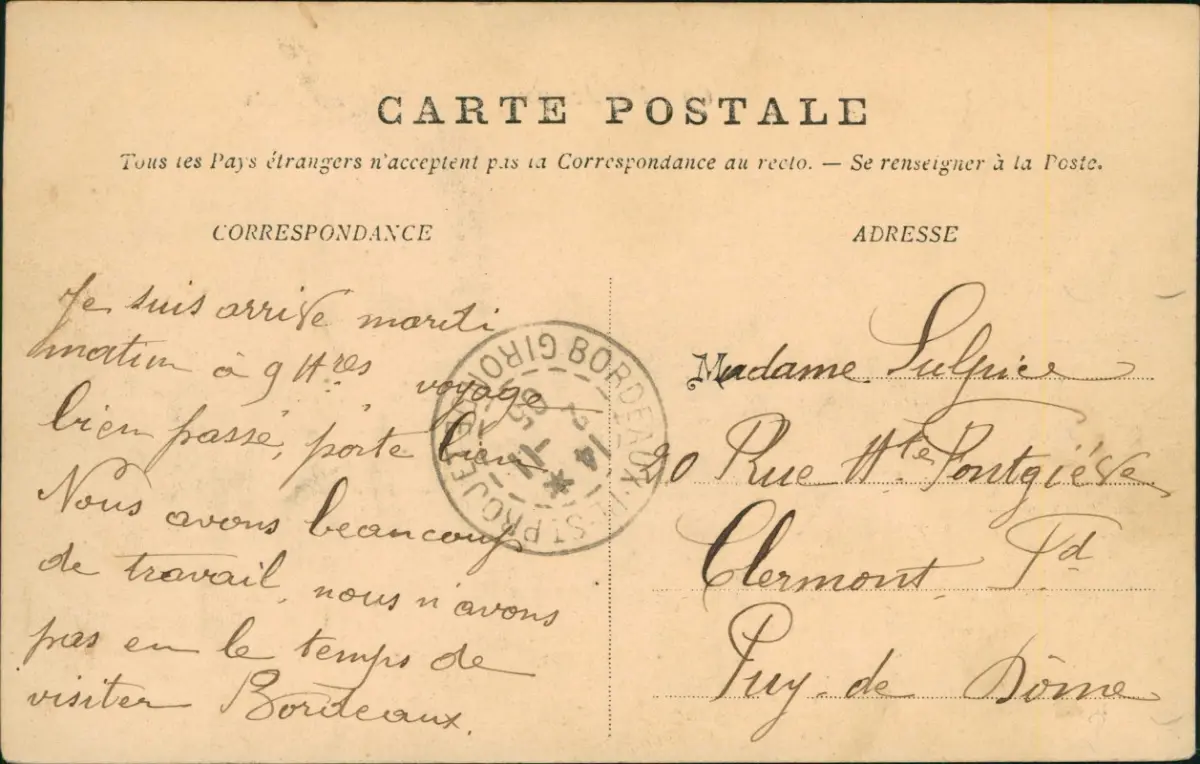 CARTE POSTALE
Tous les Pays étrangers n'acceptent pas la Correspondance au recto. — Se renseigner à la Poste.
CORRESPONDANCE
ADRESSE
Je suis arrivé mardi
matin à 9 Hres voyage
bien passé, porte bien
Nous avons beaucoup
de travail, nous n'avons
pas eu le temps de
visiter Bordeaux.
Madame Sulpice
20 Rue Hte Pontgiéve
Clermont Fd
Puy-de Dôme
BORDEAUX ST PROJET GIRONDE